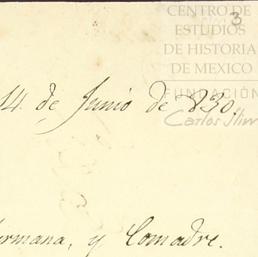 CENTRO DE
3
ESTUDIOS
DE HISTORIA
DE MEXICO
FUNDACIÓN
14. de Junio de 830.
Carlos Slim
ermana, y Comadre.